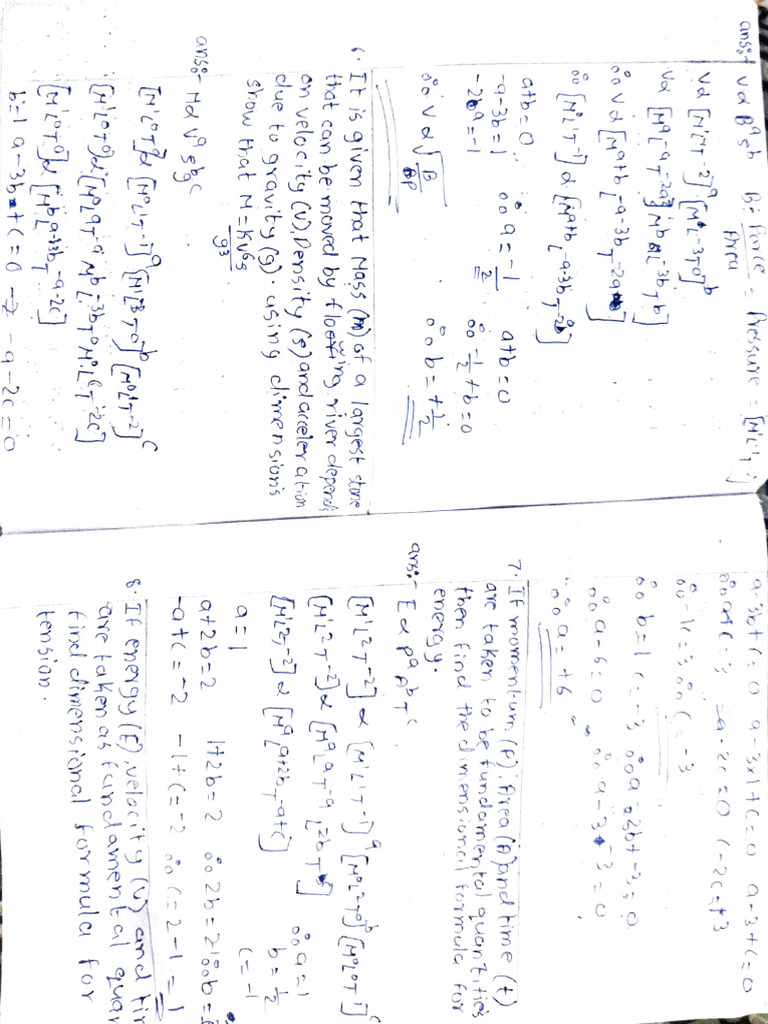 ans:- V α Bᵃ sᵇ B = Force/Area = Pressure = [M¹L⁻¹
V α [M¹L⁻¹T⁻²]ᵃ [M¹L⁻³T⁰]ᵇ
V α [MᵃL⁻ᵃT⁻²ᵃ] MᵇL⁻³ᵇTᵇ]
∴ V α [Mᵃ⁺ᵇL⁻ᵃ⁻³ᵇT⁻²ᵃ]
∴ [M⁰L¹T⁻¹] α [Mᵃ⁺ᵇL⁻ᵃ⁻³ᵇT⁻²ᵃ]
a+b=0 a+b=0
-a-3b=1 ∴ a = -1/2 ∴ -1/2 + b = 0
-2a=-1 ∴ b = +1/2
∴ V α √B/P
6. It is given that Mass (m) of a largest stone
that can be moved by flowing river depends
on velocity (v), Density (s) and acceleration
due to gravity (g). using dimensions
show that M = KV⁶s/g³
ans:- M α Vᵃ sᵇ gᶜ
[M¹L⁰T⁰] α [M⁰L¹T⁻¹]ᵃ [M¹L⁻³T⁰]ᵇ [M⁰L¹T⁻²]ᶜ
[M¹L⁰T⁰] α [M⁰LᵃT⁻ᵃ MᵇL⁻³ᵇT⁰ M⁰LᶜT⁻²ᶜ]
[M¹L⁰T⁰] α [MᵇLᵃ⁻³ᵇ⁺ᶜT⁻ᵃ⁻²ᶜ]
b=1 a-3b+c=0 → -a-2c=0
a-3b+c=0 a-3x1+c=0 a-3+c=0
∴ a+c=3 -a-2c=0 (-2c=+3
∴ -1c=3 ∴ c=-3
∴ b=1 c=-3 ∴ a-3b+-3=0
∴ a-6=0 ∴ a-3-3=0
∴ a=+6
7. If momentum (P), Area (A) and time (t)
are taken to be fundamental quantities
then find the dimensional formula for
energy.
ans:- E α Pᵃ Aᵇ Tᶜ
[M¹L²T⁻²] α [M¹L¹T⁻¹]ᵃ [M⁰L²T⁰]ᵇ [M⁰L⁰T¹]ᶜ
[M¹L²T⁻²] α [MᵃLᵃT⁻ᵃL²ᵇTᶜ]
[M¹L²T⁻²] α [MᵃLᵃ⁺²ᵇT⁻ᵃ⁺ᶜ] ∴ a=1
a=1 b=1/2
a+2b=2 1+2b=2 ∴ 2b=2-1 ∴ b= c=-1
-a+c=-2 -1+c=-2 ∴ c=2-1=1
8. If energy (E), velocity (V) and tir
are taken as fundamental quar
find dimensional formula for
tension.